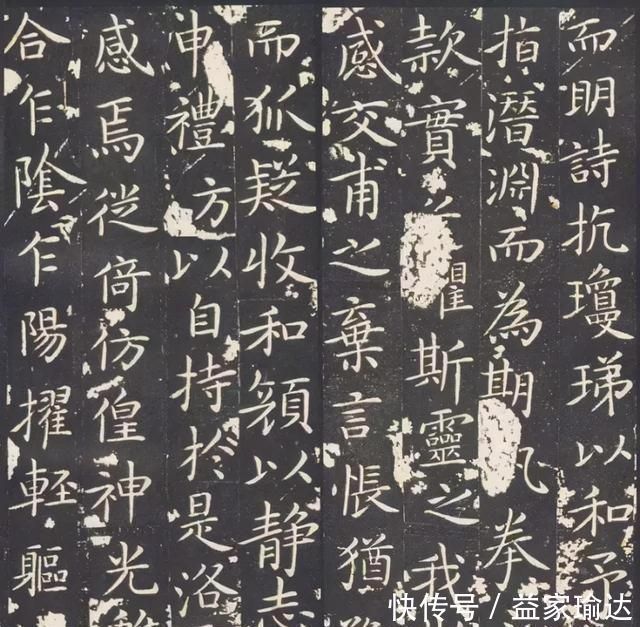 而明詩抗瓊珶以和予
指潛淵而為期拳
款實之懼斯靈之我
感交甫之棄言悵猶
而狐疑收和顏以靜志
申禮防以自持於是洛
感焉徙倚仿偟神光
合乍陰乍陽擢輕軀
快传号 / 益家瑜达